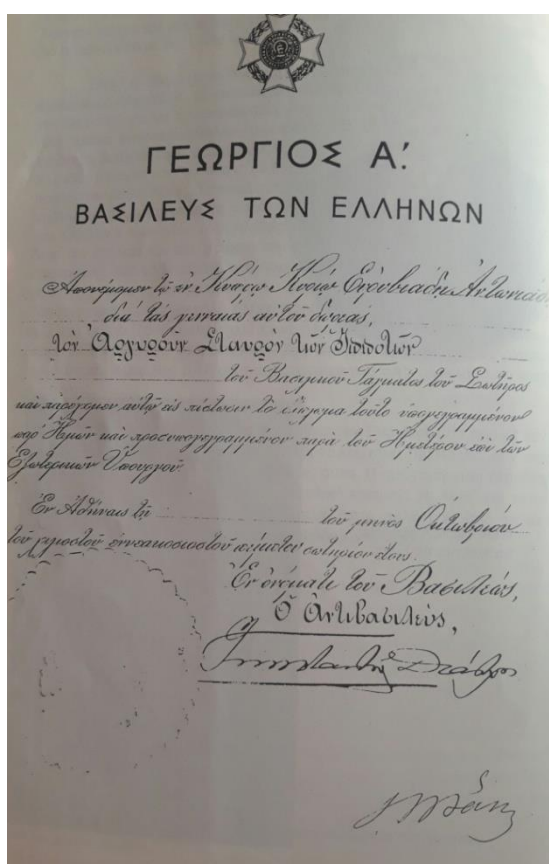 ΓΕΩΡΓΙΟΣ Α.'
ΒΑΣΙΛΕΥΣ ΤΩΝ ΕΛΛΗΝΩΝ
Ἀπονέμομεν τῷ ἐν Κυρίῳ
διὰ τὰς γενναίας αὐτοῦ δωρεάς,
τὸν Ἀργυροῦν Σταυρὸν τῶν Ἱπποτῶν
τοῦ Βασιλικοῦ Τάγματος τοῦ Σωτῆρος
καὶ παρέχομεν αὐτῷ εἰς πίστωσιν τὸ δίπλωμα τοῦτο ὑπογεγραμμένον
παρ' Ἡμῶν καὶ προσυπογεγραμμένον παρὰ τοῦ Ἡμετέρου ἐπὶ τῶν
Ἐξωτερικῶν Ὑπουργοῦ
Ἐν Ἀθήναις τῇ τοῦ μηνὸς Ὀκτωβρίου
τοῦ χιλιοστοῦ ἐννεακοσιοστοῦ σωτηρίου ἔτους.
Ἐν ὀνόματι τοῦ Βασιλέως,
Ὁ Ἀντιβασιλεύς,
Κωνσταντῖνος